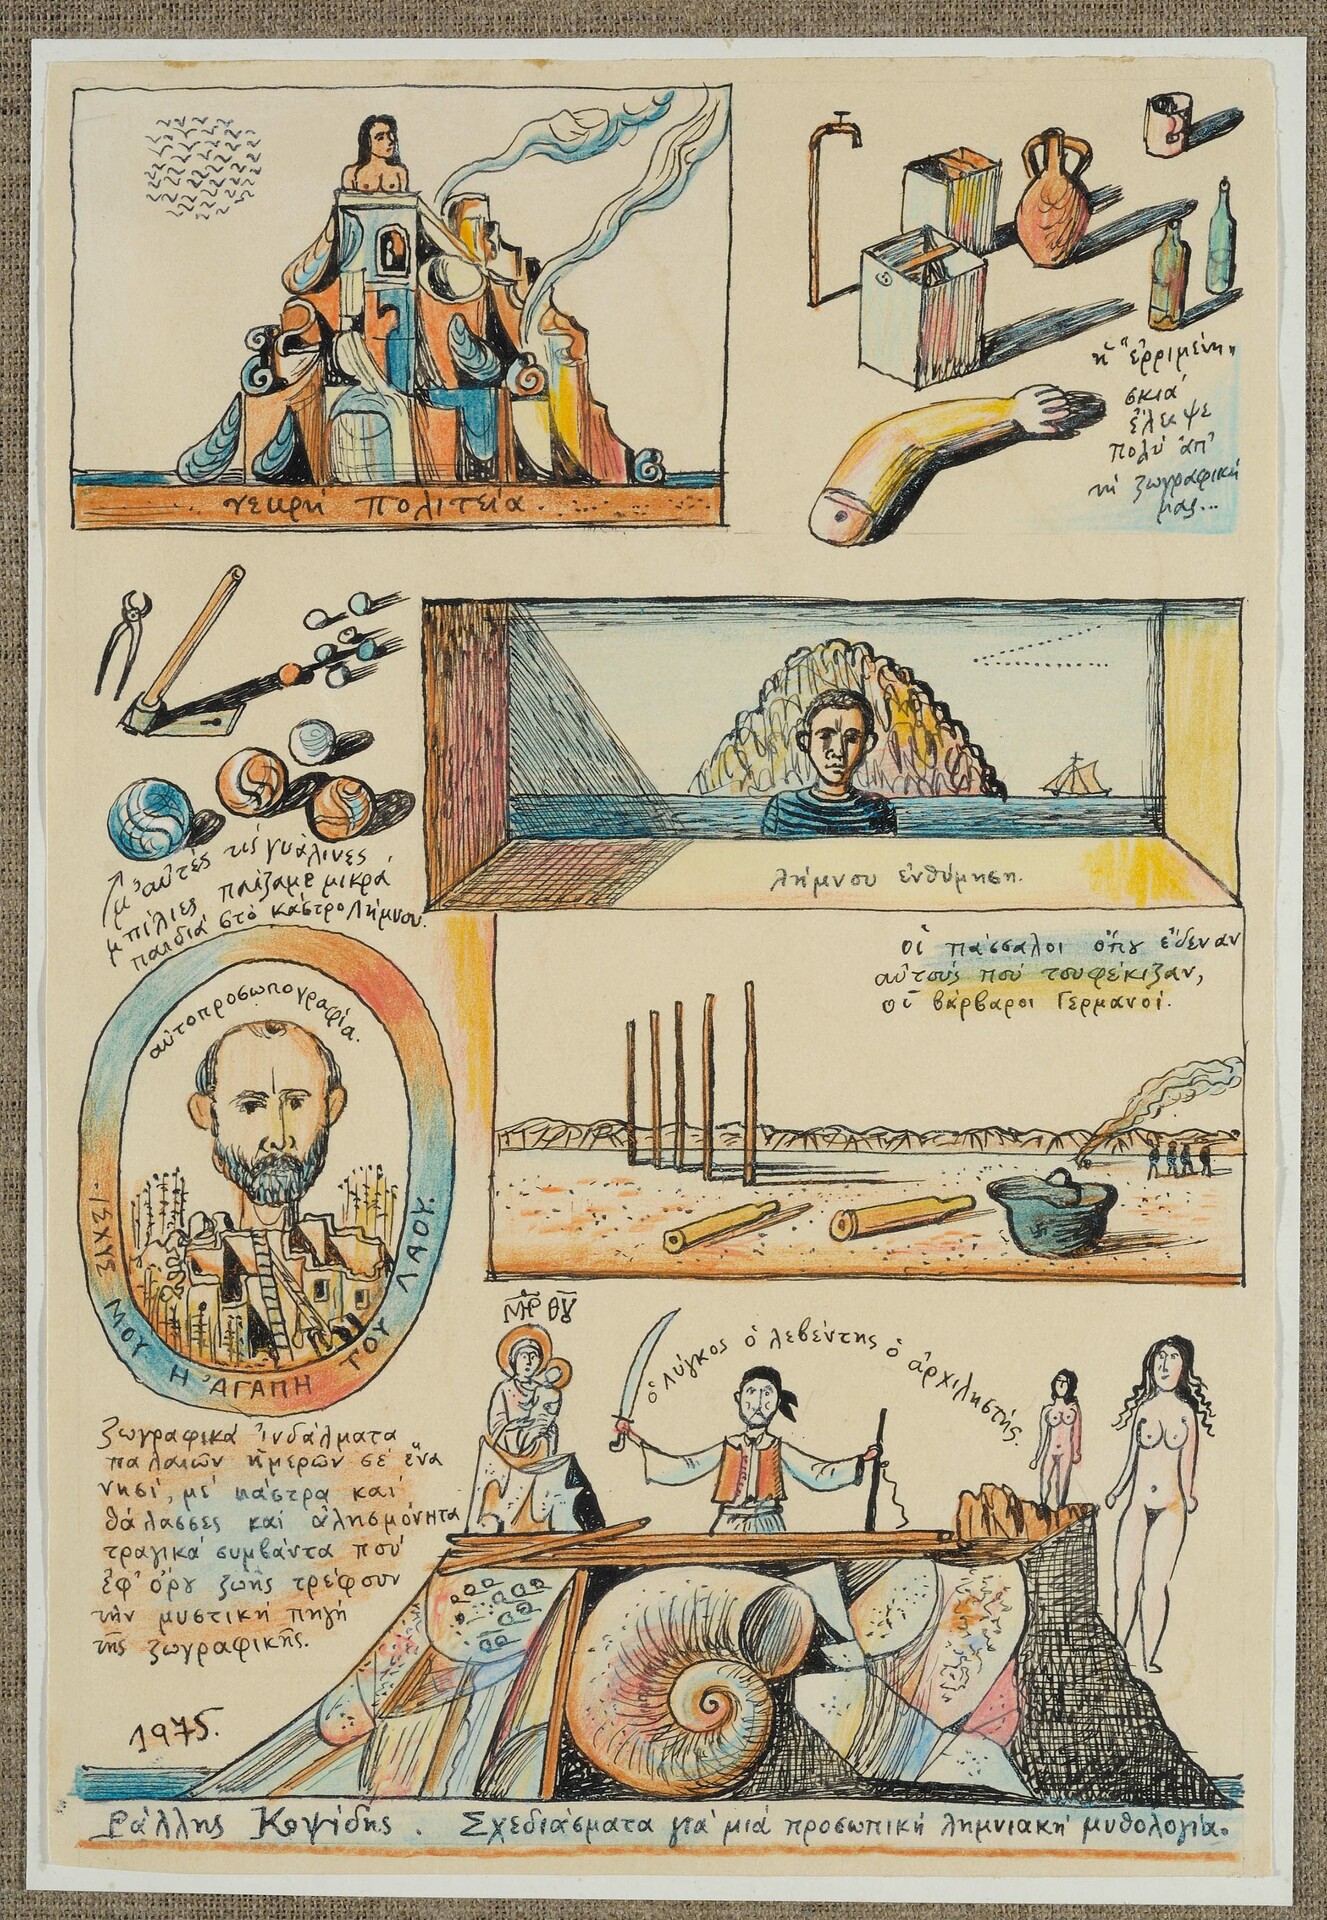 νεκρή πολιτεία.
ἡ "ἐρριμένη"
σκιά
ἔλειψε
πολύ ἀπ'
τή ζωγραφική
μας...
μ' αὐτές τίς γυάλινες
μπίλιες παίζαμε μικρά
παιδιά στό κάστρο Λήμνου.
λήμνου ἐνθύμηση.
οἱ πάσσαλοι ὅπου ἔδεναν
αὐτούς πού τουφέκιζαν,
οἱ βάρβαροι Γερμανοί.
αὐτοπροσωπογραφία.
ΙΣΧΥΣ ΜΟΥ Η ἈΓΑΠΗ ΤΟΥ ΛΑΟΥ.
ΜΡ ΘΥ
ὁ λύγκος ὁ λεβέντης ὁ ἀρχιληστής.
ζωγραφικά ἰνδάλματα
παλαιῶν ἡμερῶν σέ ἕνα
νησί, μέ κάστρα και
θάλασσες και ἀλησμόνητα
τραγικά συμβάντα πού
ἐφ' ὅρου ζωῆς τρέφουν
τήν μυστική πηγή
τῆς ζωγραφικῆς.
1975.
Ράλλης Κοψίδης. Σχεδιάσματα γιά μιά προσωπική λημνιακή μυθολογία.